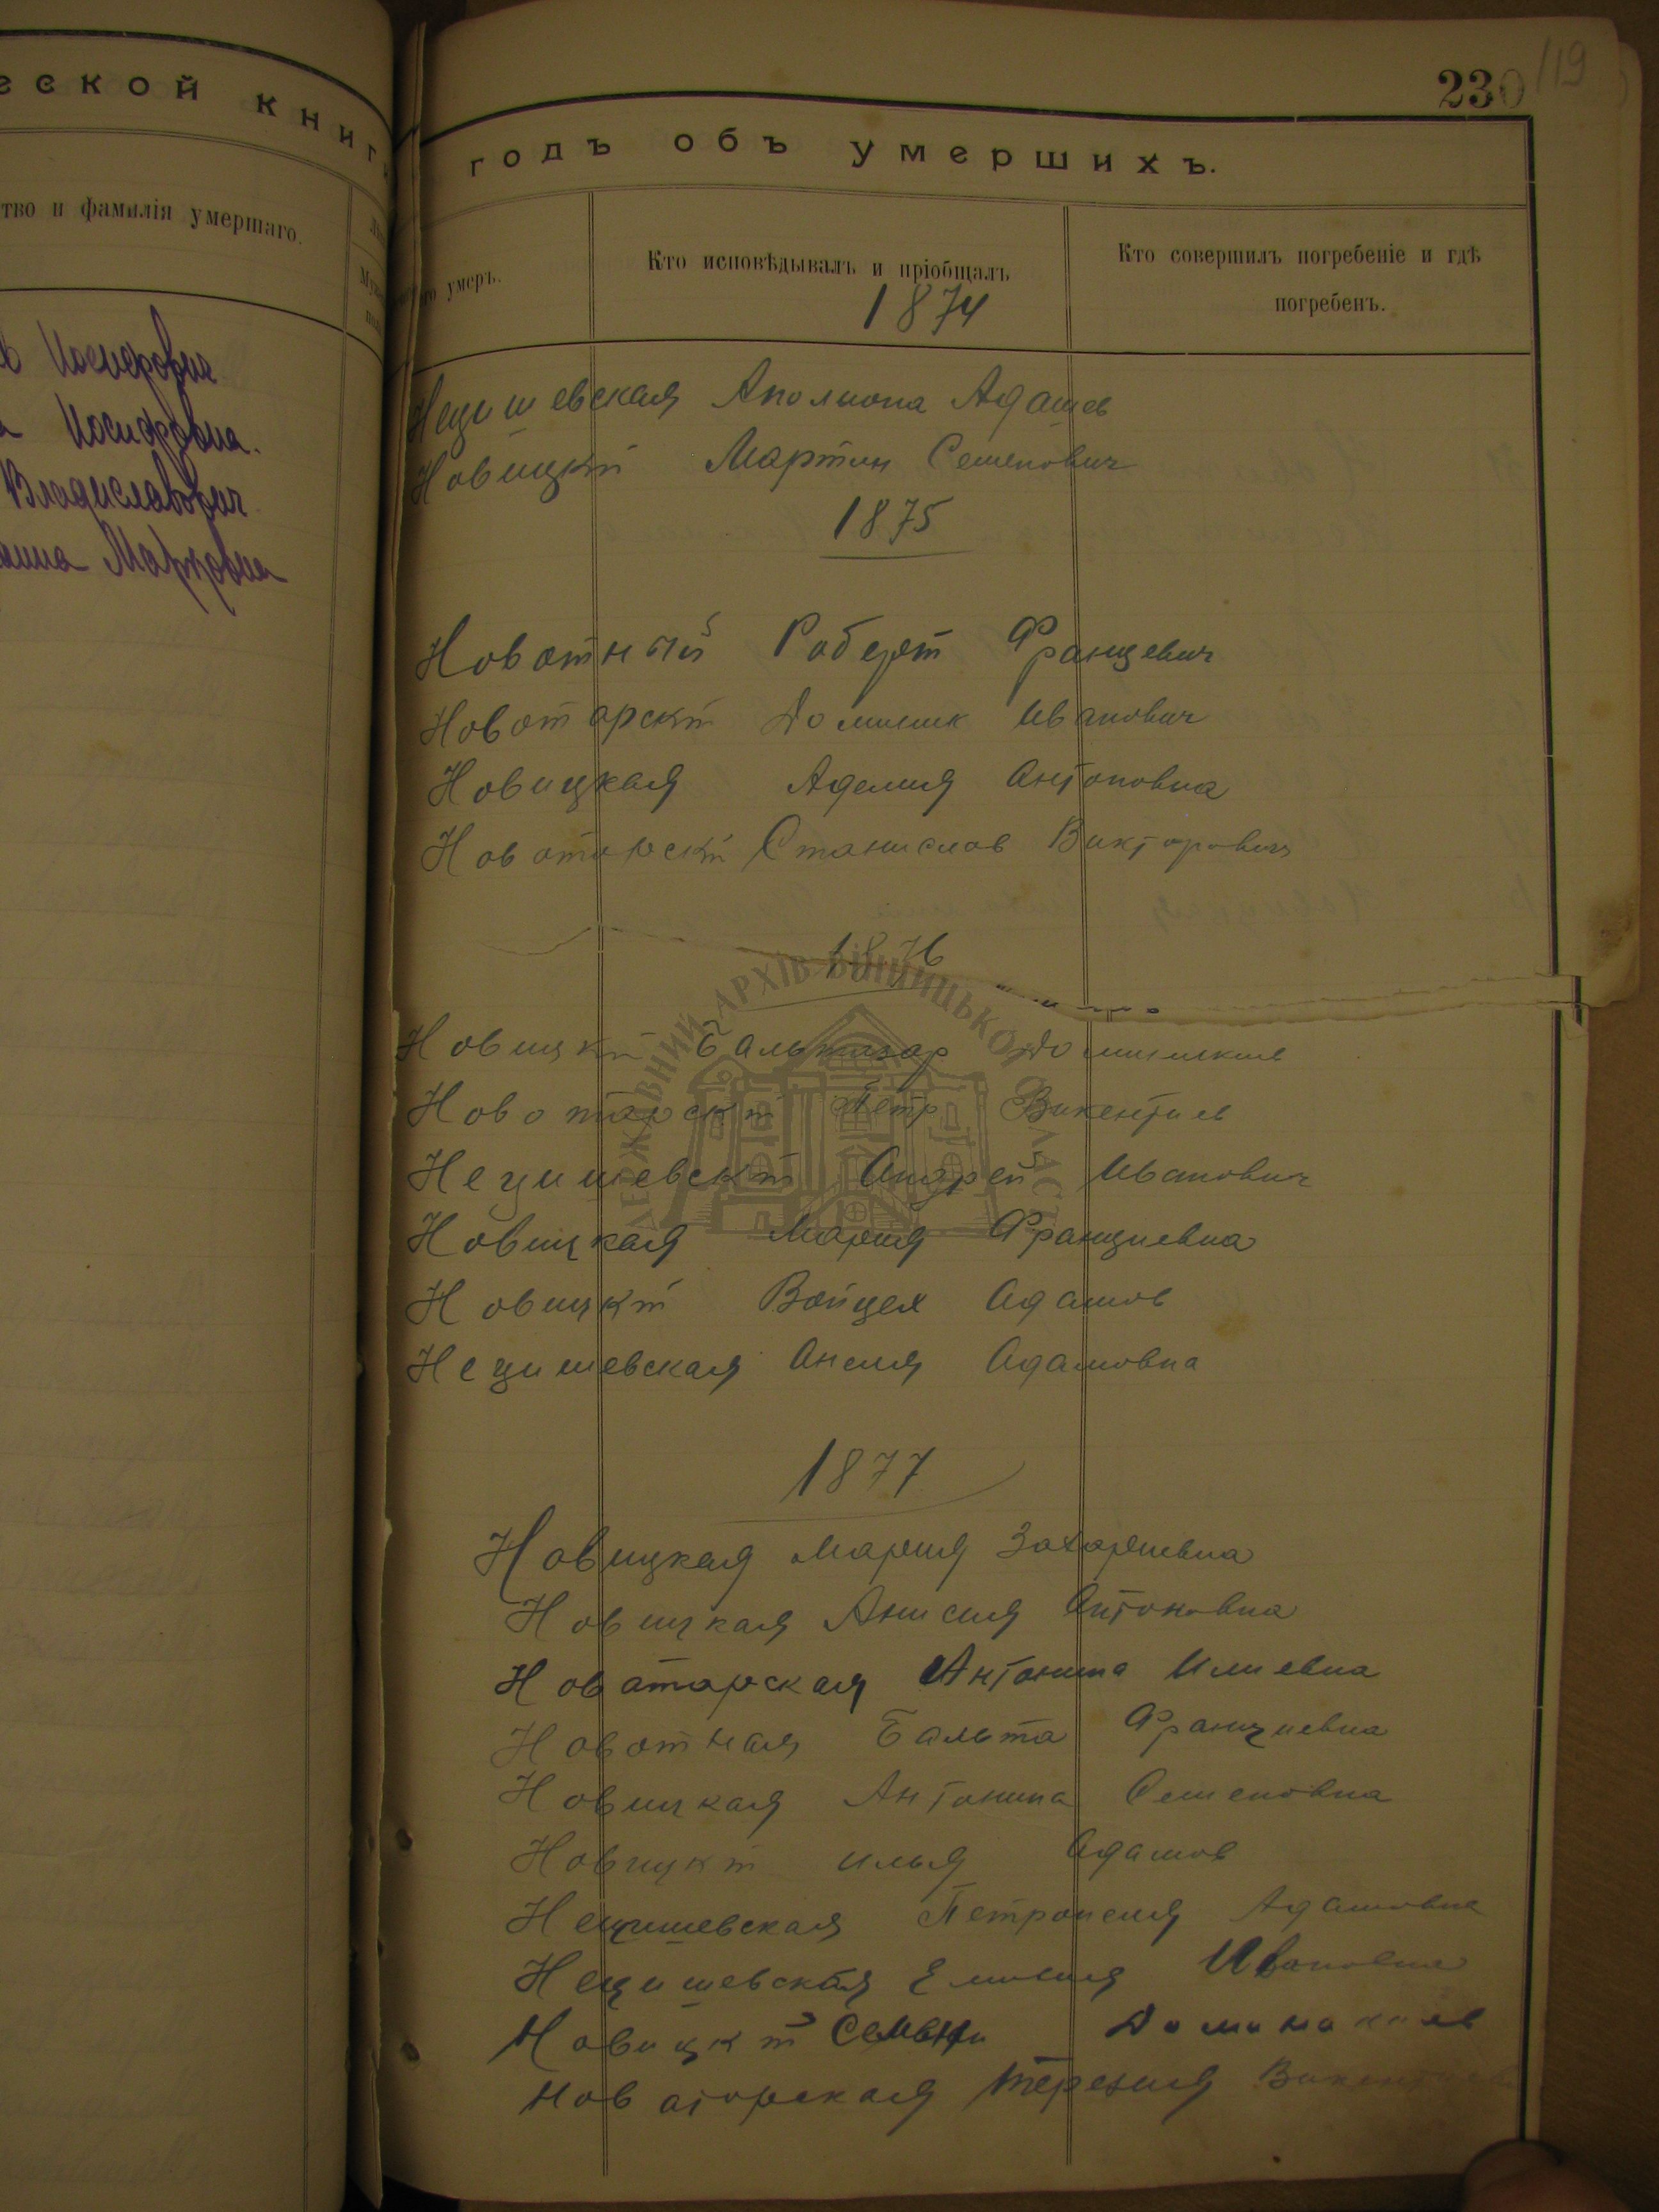 еской книги
тво и фамилія умершаго.
Иосифович
Иосифовна.
Владиславович
Марковна
230
119
годъ объ умершихъ.
го умеръ.
Кто исповѣдывалъ и пріобщалъ
Кто совершилъ погребеніе и гдѣ
погребенъ.
1874
Нецишевская Аполиона Адамов
Новицкій Мартин Семенович
1875
Новотный Роберт Францевич
Новотарскій Доминик Иванович
Новицкая Аделия Антоновна
Новотарскій Станислав Викторович
1876
Новицкій Бальтазар Домиников
Новотарскій Петр Викентиев
Нецишевскій Андрей Иванович
Новицкая Мария Францивна
Новицкій Войцех Адамов
Нецишевская Анеля Адамовна
1877
Новицкая Мария Захариевна
Новицкая Анисия Антоновна
Новатарская Антонина Илиевна
Новотная Бальта Франциевна
Новицкая Антонина Семеновна
Новицкій Илья Адамов
Нецишевская Петронеля Адамовна
Нецишевская Емилия Ивановна
Новицкій Семен
Новаторская Терезия
ДЕРЖАВНИЙ АРХІВ ВІННИЦЬКОЇ ОБЛАСТІ